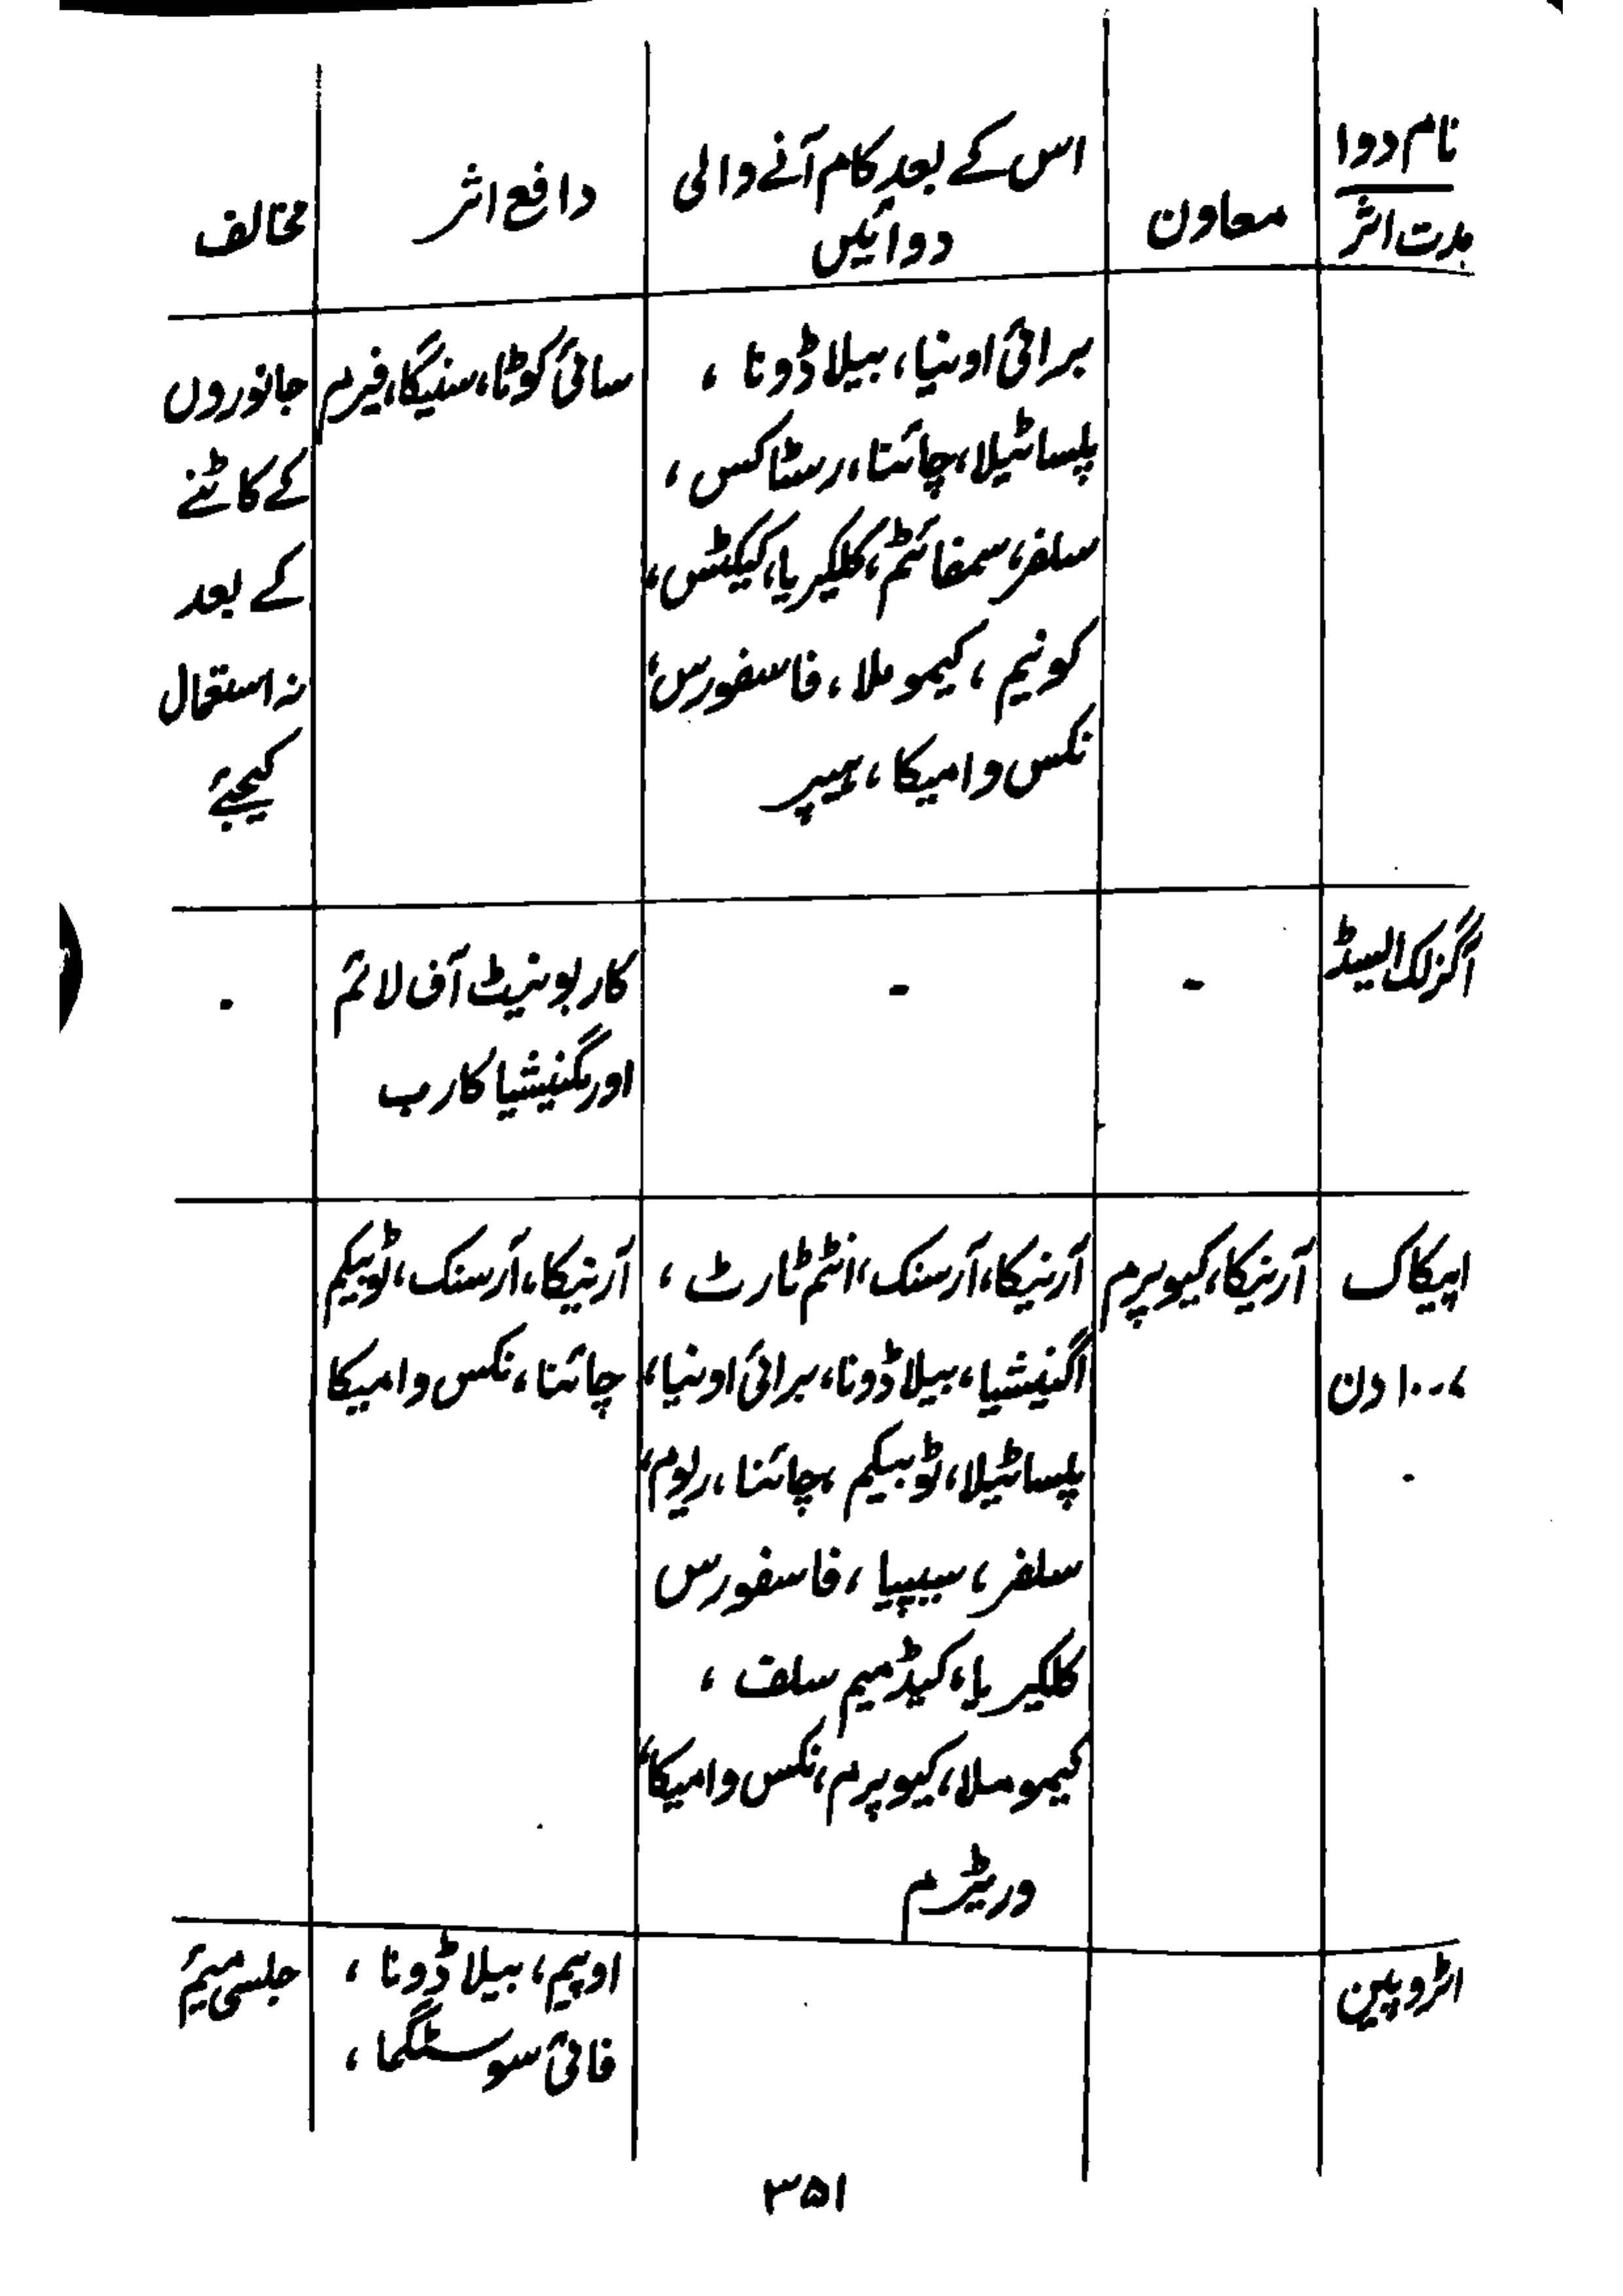 نام دوا
مدت اثر
معاون
اس کے بعد کام آنے والی
دوائیں
دافع اثر
مخالف
برائی اونیا، بیلا ڈونا ،
پلساٹیلا، چائنا، رسٹاکس ،
سلفر، سمفائٹم، کلکیریا، کیکٹس،
کونیم ، کیمو ملا ، فاسفورس،
نکس وامیکا ، ہیپر
سائی کوٹا، سنیگا، فیرم
جانوروں
کے کاٹنے
کے بعد
نہ استعمال
کیجئے
آگزلک ایسڈ
-
-
کاربونیٹ آف لائم
اور مگنیشیا کارب
-
اپیکاک
۷-۱۰ دن
آرنیکا، کیوپرم
آرنیکا، آرسنک، انٹم ٹارٹ ،
اگنیشیا، بیلا ڈونا، برائی اونیا،
پلساٹیلا، ٹوبیکم ، چائنا ، ریوم،
سلفر ، سیپیا ، فاسفورس
کلکیریا، کیڈمیم سلف ،
کیمو ملا، کیوپرم، نکس وامیکا،
وریٹرم
آرنیکا، آرسنک، ٹوبیکم
چائنا ، نکس وامیکا
اٹروپین
اوپیم، بیلا ڈونا ،
فائی سوسٹگما ،
جلسی میئم
۳۵۱